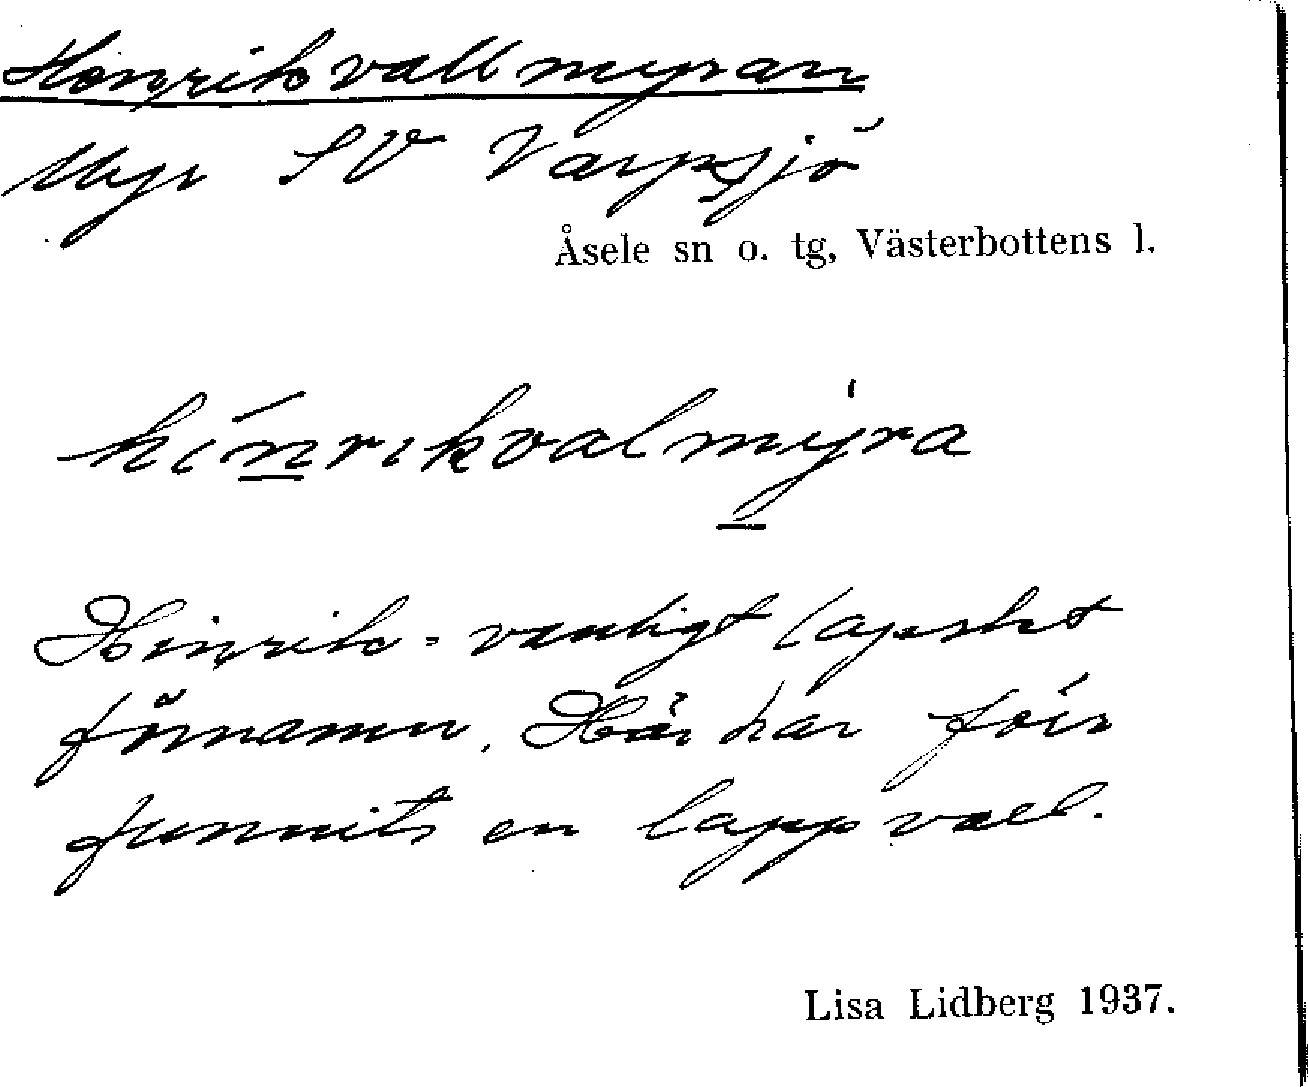 Hinrikvallmyran
Myr SV Varpsjö
Åsele sn o. tg, Västerbottens l.
hinrikvalmyra
Hinrik = vanligt lapskt
förnamn. Här har förr
funnits en lappvall.
Lisa Lidberg 1937.